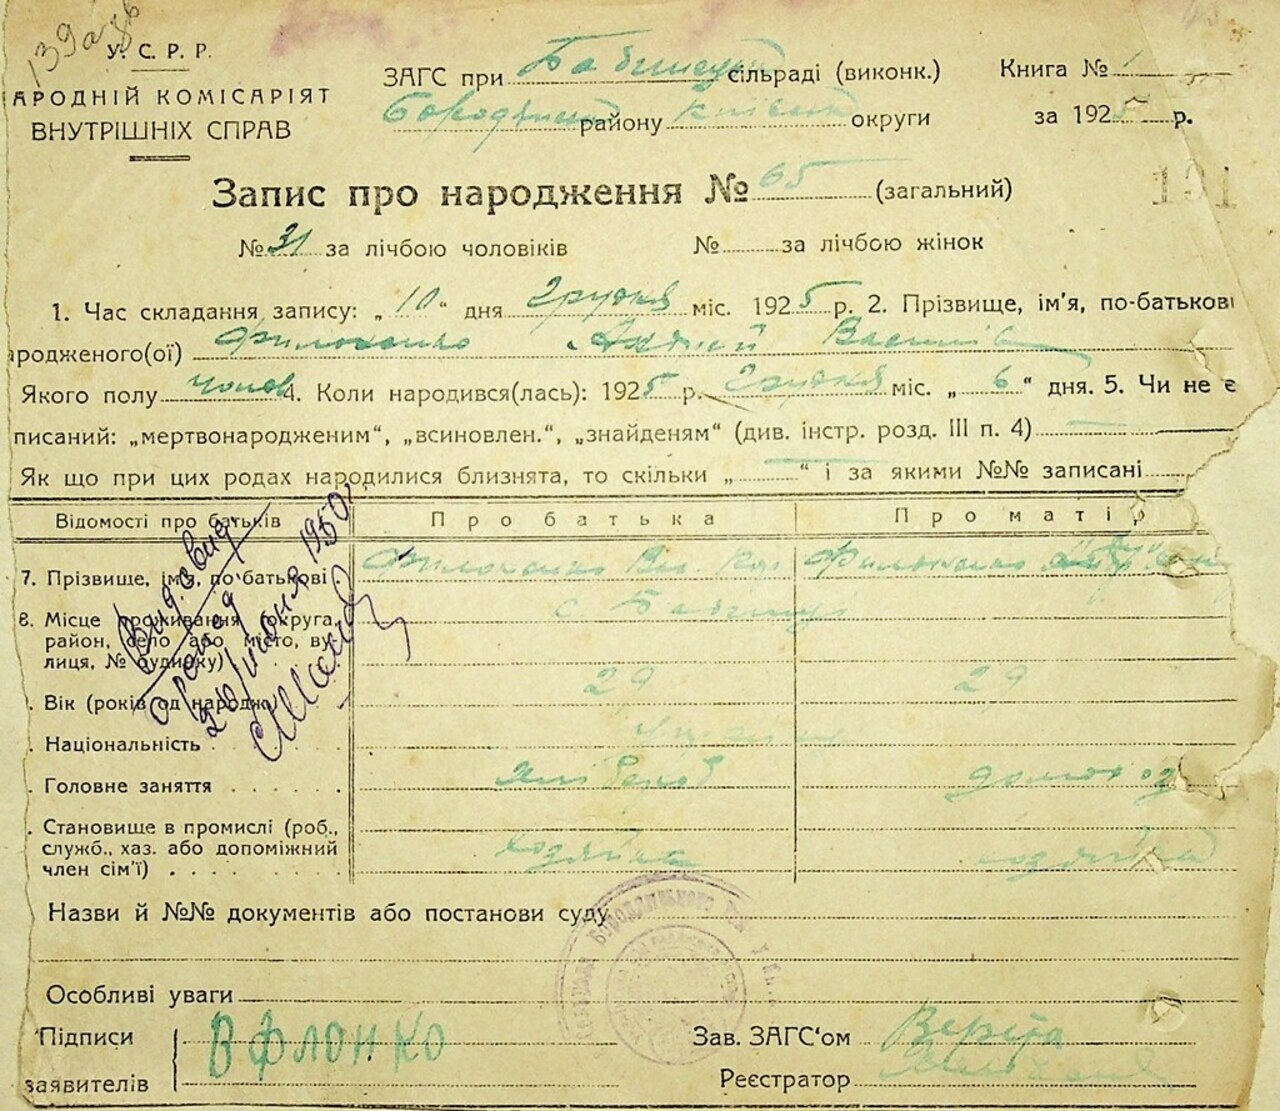 139а зв
У.С.Р.Р.
АРОДНІЙ КОМІСАРІЯТ
ВНУТРІШНІХ СПРАВ
ЗАГС при Бабинецкій сільраді (виконк.)
Бородянск району Київськ округи
Книга №
за 1925 р.
Запис про народження № 65 (загальний)
191
№ 31 за лічбою чоловіків № за лічбою жінок
1. Час складання запису: „10“ дня Грудня міс. 1925 р. 2. Прізвище, ім'я, по-батькові
ародженого(ої) Филоненко Андрій Васильів
Якого полу чолов 4. Коли народився(лась): 1925 р. Грудня міс. „6“ дня. 5. Чи не є
писаний: „мертвонародженим“, „всиновлен.“, „знайденям“ (див. інстр. розд. III п. 4)
Як що при цих родах народилися близнята, то скільки „ “ і за якими №№ записані
Відомості про батьків Про батька Про матір
7. Прізвище, ім'я, по батькові Филоненко Вас. Филоненко
8. Місце проживання (округа, район, село або місто, вулиця, № будинку) с. Бабинці
. Вік (років од народж.) 29 29
. Національність
. Головне заняття Хлібороб домогоз
. Становище в промислі (роб.,
служб., хаз. або допоміжний
член сім'ї) хозяїна хозяїна
26/июня 1950
Назви й №№ документів або постанови суду
Особливі уваги
Підписи
заявителів
В ФЛОНКО
Зав. ЗАГС'ом
Реєстратор